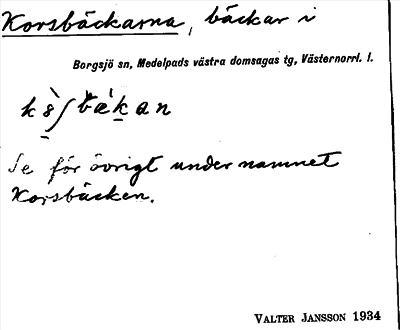 Korsbäckarna, bäckar i
Borgsjö sn, Medelpads västra domsagas tg, Västernorrl. l.
Se för övrigt under namnet
Korsbäcken.
VALTER JANSSON 1934